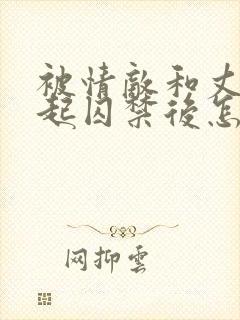 被情敵和丈
起囚禁後怎
网抑雲